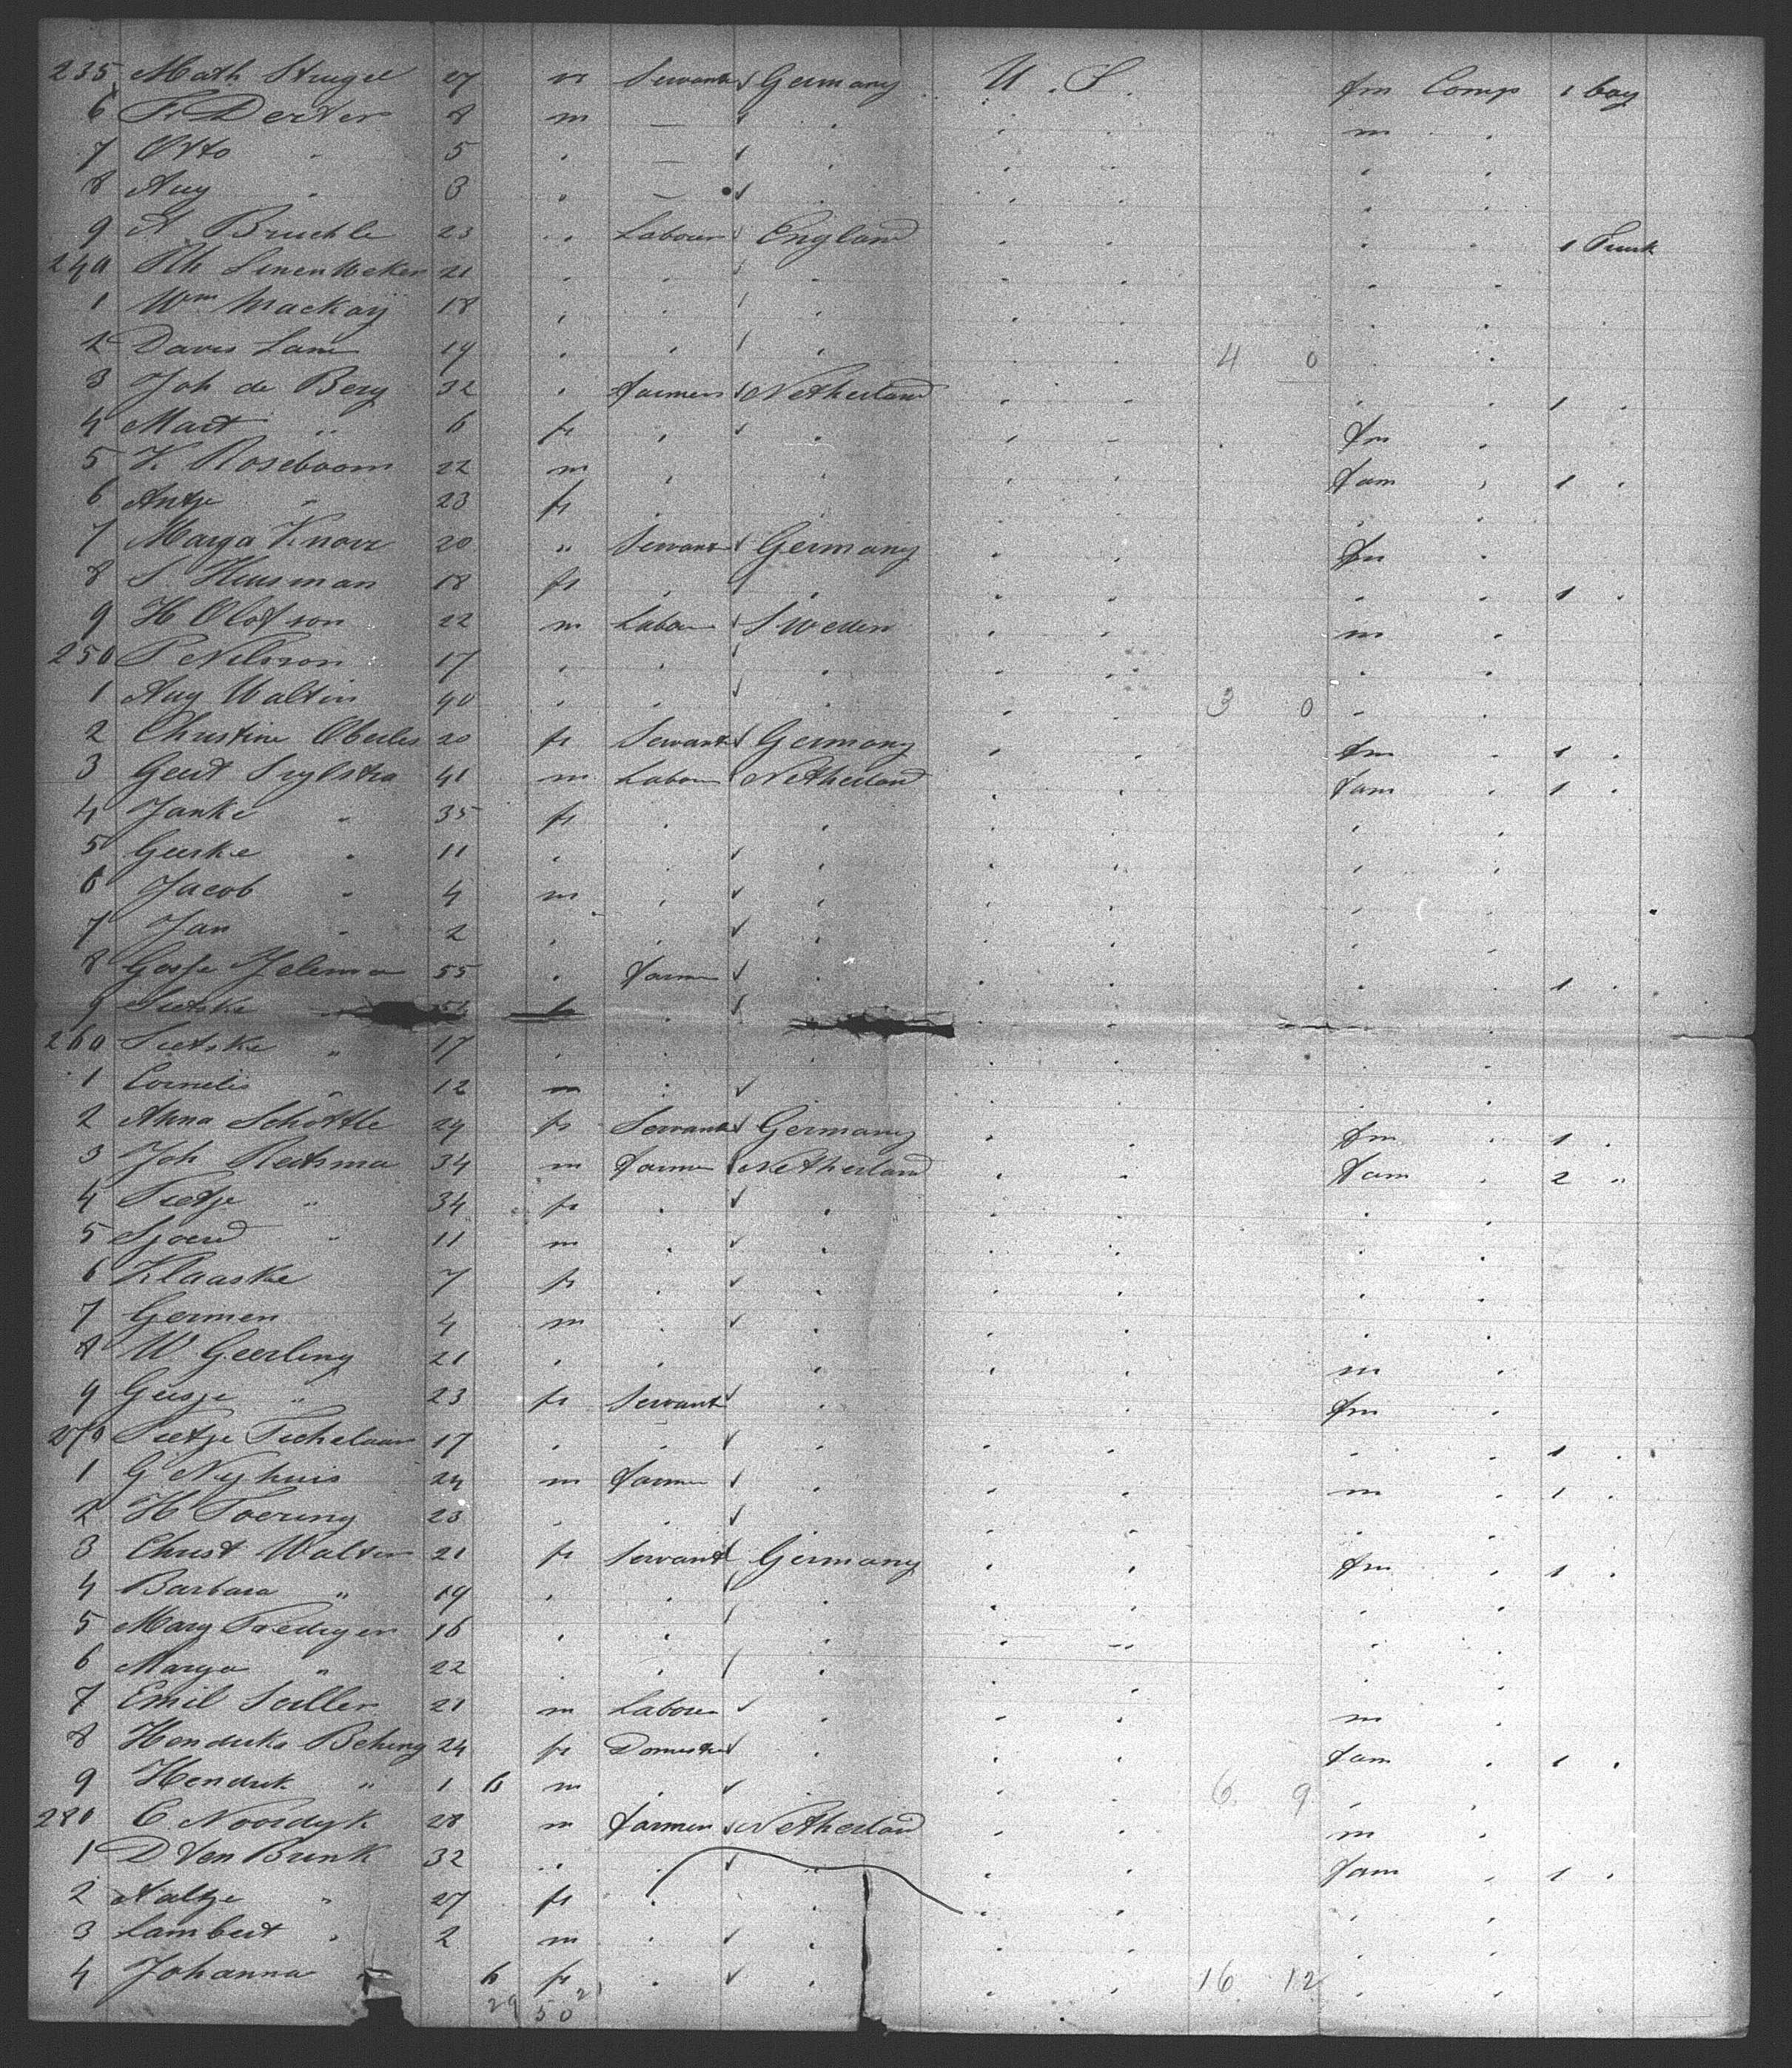 235 Math Stugel 27 m Servant √ Germany U. S. fm Comp 1 bag
6 Fr Dexter 8 m — √ . . . m .
7 Otto " 5 . — √ . . . . .
8 Aug " 3 . — √ . . . . .
9 A. Bruchle 23 " Labour √ England . . . . 1 Trunk
240 21 . . √ . . . . .
1 Wm Mackay 18 . . √ . . . . .
2 Davis Lane 19 . . √ . . . 4 0 . .
3 Joh de Berg 32 . farmer √ Netherland . . . . 1 .
4 Mart " 6 fr . √ . . . fm .
5 K Roseboom 22 m . . . . fam . 1 .
6 Antje " 23 fr . . . . . .
7 Marga Knorr 20 " Servant √ Germany . . fm .
8 S. Huusman 18 fr . √ . . . . . 1 .
9 H Olofson 22 m Labour √ Sweden . . m .
250 P Nilsson 17 . . √ . . . . .
1 Aug Waltin 40 . . √ . . . 3 0 . .
2 Christine Oberles 20 fr Servant √ Germany . . fm . 1 .
3 Geert Sylstra 41 m Labour √ Netherland . . fam . 1 .
4 Janke " 35 fr . . . . . .
5 Geeske " 11 . . √ . . . . .
6 Jacob " 4 m . √ . . . . .
7 Jan " 2 . . √ . . . . .
8 Gosse Jelema 55 . farmer √ . . . . . 1 .
9 Sietske " . √ . . . .
260 Sietske " 17 . . . . . . .
1 Cornelis " 12 m . √ . . .
2 Anna Schottle 24 fr Servant √ Germany . . fm . 1 .
3 Joh Reitsma 34 m farmer √ Netherland . . fam . 2 "
4 Tietje " 34 fr . √ . . . . .
5 Sjoerd " 11 m . √ . . . . .
6 Klaaske 7 fr . √ . . . . .
7 Germen 4 m . √ . . . . .
8 W Geerling 21 . . . . . m .
9 Geesje " 23 fr Servant √ . . . fm .
270 Tietje Tichelaar 17 . . √ . . . . . 1 .
1 G Nyhuis 24 m farmer √ . . . m . 1 .
2 H Toering 23 . . √ . . . . .
3 Christ Walter 21 fr Servant √ Germany . . fm . 1 .
4 Barbara " 19 . . √ . . . . .
5 Mary Prediger 16 . . √ . . . . .
6 Marga " 22 . . √ . . . . .
7 Emil Saller 21 m Labour √ . . . m .
8 Hendrika Behing 24 fr Domestic √ . . . fam . 1 .
9 Hendrik " 1 6 m . √ . . . 6 9 . .
280 C. Noordyk 28 m farmer √ Netherland . . m .
1 D Ten Brink 32 " . √ " . . fam . 1 .
2 Aaltje " 27 fr . . . . . .
3 Lambert " 2 m . √ . . . . .
4 Johanna " 6 fr . √ . . . 16 12 . .
29 50 21